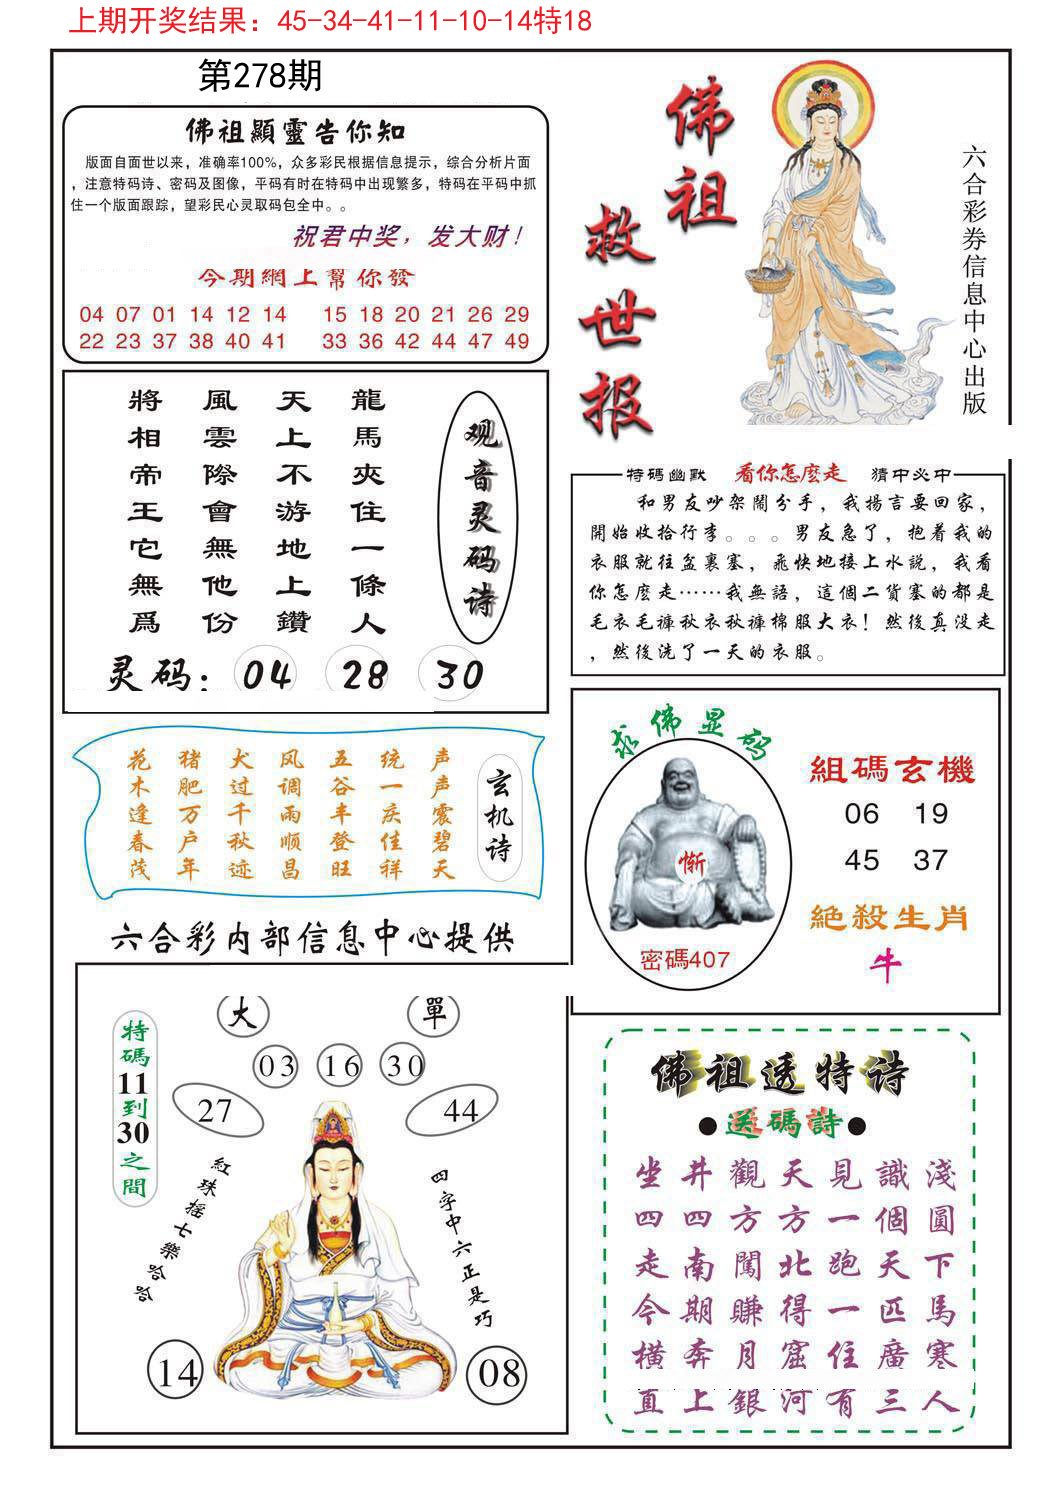 上期开奖结果：45-34-41-11-10-14特18
第278期
佛祖顯靈告你知
版面自面世以来，准确率100%，众多彩民根据信息提示，综合分析片面
，注意特码诗、密码及图像，平码有时在特码中出现繁多，特码在平码中抓
住一个版面跟踪，望彩民心灵取码包全中。。
祝君中奖，发大财！
今期網上幫你發
04 07 01 14 12 14 15 18 20 21 26 29
22 23 37 38 40 41 33 36 42 44 47 49
佛祖
救世报
六合彩券信息中心出版
观音灵码诗
龍馬夾住一條人
天上不游地上鑽
風雲際會無他份
將相帝王它無爲
灵码：04 28 30
特碼幽默 看你怎麽走 猜中必中
和男友吵架鬧分手，我揚言要回家，
開始收拾行李。。。男友急了，抱着我的
衣服就往盆裏塞，飛快地接上水説，我看
你怎麽走……我無語，這個二貨塞的都是
毛衣毛褲秋衣秋褲棉服大衣！然後真没走
，然後洗了一天的衣服。
玄机诗
声声震碧天
统一庆佳祥
五谷丰登旺
风调雨顺昌
犬过千秋迹
猪肥万户年
花木逢春茂
求佛显码
惭
密碼407
組碼玄機
06 19
45 37
絕殺生肖
牛
六合彩内部信息中心提供
特碼11到30之間
大 單
03 16 30
27 44
紅珠摇七樂哈哈
四字中六正是巧
14 08
佛祖透特诗
●送碼詩●
坐井觀天見識淺
四四方方一個圓
走南闖北跑天下
今期賺得一匹馬
横奔月窟住廣寒
直上銀河有三人